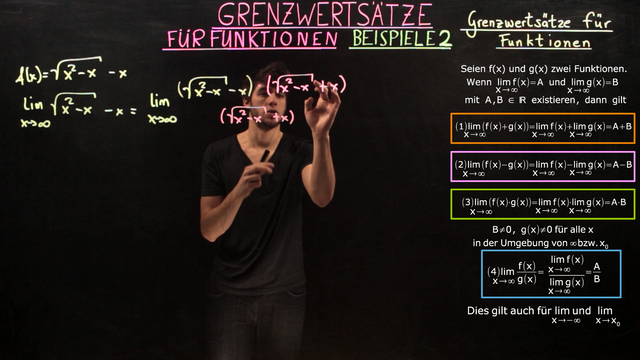 GRENZWERTSÄTZE
FÜR FUNKTIONEN BEISPIELE 2
f(x)=√(x²-x) -x
lim √(x²-x) -x = lim (√(x²-x) -x) (√(x²-x) +x)
x→∞ x→∞ (√(x²-x) +x)
Grenzwertsätze für
Funktionen
Seien f(x) und g(x) zwei Funktionen.
Wenn lim f(x)=A und lim g(x)=B
x→∞ x→∞
mit A,B ∈ ℝ existieren, dann gilt
(1)lim(f(x)+g(x))=lim f(x)+lim g(x)=A+B
x→∞ x→∞ x→∞
(2)lim(f(x)−g(x))=lim f(x)−lim g(x)=A−B
x→∞ x→∞ x→∞
(3)lim(f(x)·g(x))=lim f(x)·lim g(x)=A·B
x→∞ x→∞ x→∞
B≠0, g(x)≠0 für alle x
in der Umgebung von ∞bzw.x₀
(4)lim f(x)/g(x) = lim f(x)/lim g(x) = A/B
x→∞ x→∞ x→∞
Dies gilt auch für lim und lim
x→−∞ x→x₀